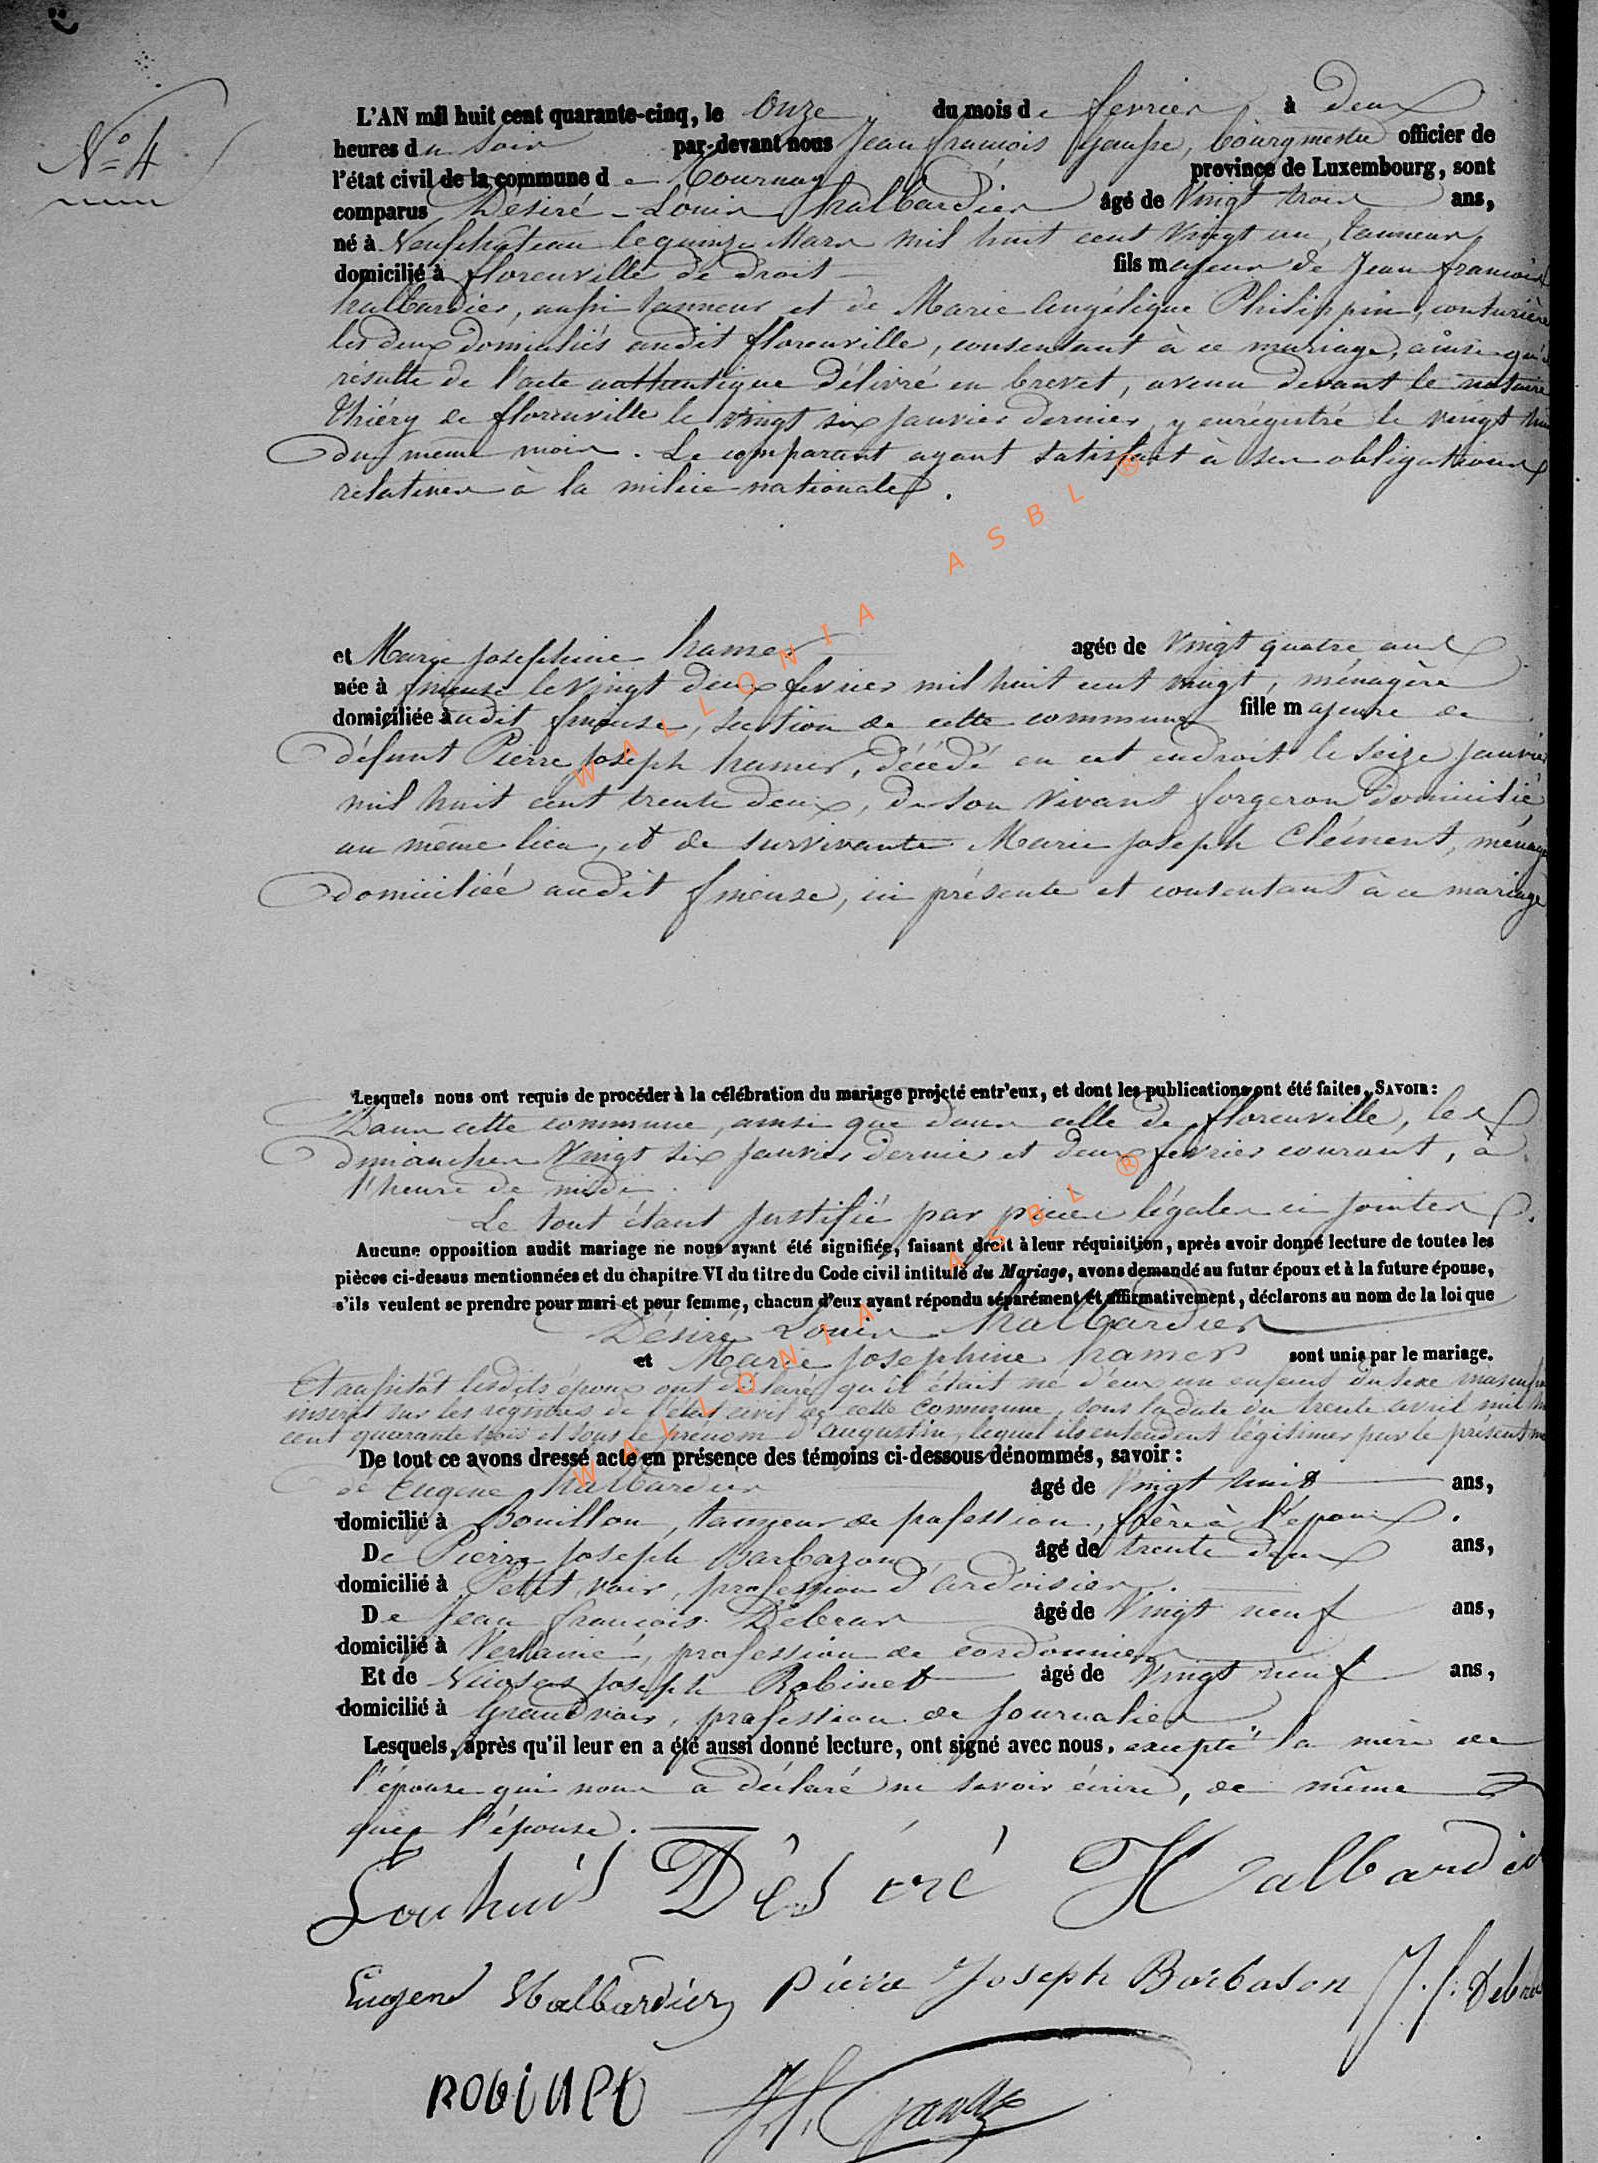 N° 4
L'AN mil huit cent quarante-cinq, le Onze du mois de fevrier, à deux
heures du soir par-devant nous Jean françois bourgmestre officier de
l'état civil de la commune de Tournay province de Luxembourg, sont
comparus Désiré-Louis halbardier âgé de vingt trois ans,
né à Neufchâteau le quinze Mars mil huit cent vingt un, tanneur,
domicilié à florenville de droit fils majeur de Jean françois
halbardier, aussi tanneur et de Marie Angélique Philippin, couturière
les deux domiciliés audit florenville, consentant à ce mariage, ainsi qu'il
résulte de l'acte authentique délivré en brevet, avenu devant le notaire
Thiéry de florenville le vingt six janvier dernier, y enrégistré le vingt huit
du même mois. Le comparant ayant satisfait à ses obligations
relatives à la milice nationale.
et Marie Josephine hamer agée de vingt quatre ans
née à le vingt deux fevrier mil huit cent vingt, ménagère
domiciliée audit section de cette commune fille majeure de
défunt Pierre Joseph hamer, décédé en cet endroit le seize janvier
mil huit cent trente deux, de son vivant forgeron domicilié
au même lieu, et de survivante Marie Joseph Clément, ménagère
domiciliée audit ici présente et consentant à ce mariage
Lesquels nous ont requis de procéder à la célébration du mariage projeté entr'eux, et dont les publications ont été faites, SAVOIR:
Dans cette commune, ainsi que dans celle de florenville, les
dimanches vingt six janvier dernier et deux fevrier courant, à
l'heure de midi.
Le tout étant justifié par pièces légales ci jointes.
Aucune opposition audit mariage ne nous ayant été signifiée, faisant droit à leur réquisition, après avoir donné lecture de toutes les
pièces ci-dessus mentionnées et du chapitre VI du titre du Code civil intitulé du Mariage, avons demandé au futur époux et à la future épouse,
s'ils veulent se prendre pour mari et pour femme, chacun d'eux ayant répondu séparément et affirmativement, déclarons au nom de la loi que
Désiré Louis halbardier
et Marie Josephine hamer sont unis par le mariage.
Et aussitôt lesdits époux ont déclaré qu'il était né d'eux un enfant du sexe masculin
inscrit sur les registres de l'état civil de cette commune, sous la date du trente avril mil huit
cent quarante trois et sous le prénom d'Augustin, lequel ils entendent légitimer par le présent
De tout ce avons dressé acte en présence des témoins ci-dessous dénommés, savoir:
de Eugène halbardier âgé de vingt huit ans,
domicilié à Bouillon, tanneur de profession, frère à l'époux.
De Pierre Joseph Barbazon, âgé de trente deux ans,
domicilié à Petit voir, profession d'ardoisier.
De Jean françois Debras âgé de vingt neuf ans,
domicilié à Verlaine, profession de cordonnier
Et de Nicolas Joseph Robinet âgé de vingt neuf ans,
domicilié à Grandvoir, profession de journalier
Lesquels, après qu'il leur en a été aussi donné lecture, ont signé avec nous, excepté la mère de
l'épouse qui nous a déclaré ne savoir écrire, de même
que l'épouse.
Désiré Halbardier
Eugene Halbardier Pierre Joseph Barbason J. f. Debras
ROBINET
WALLONIA ASBL ®
WALLONIA ASBL ®